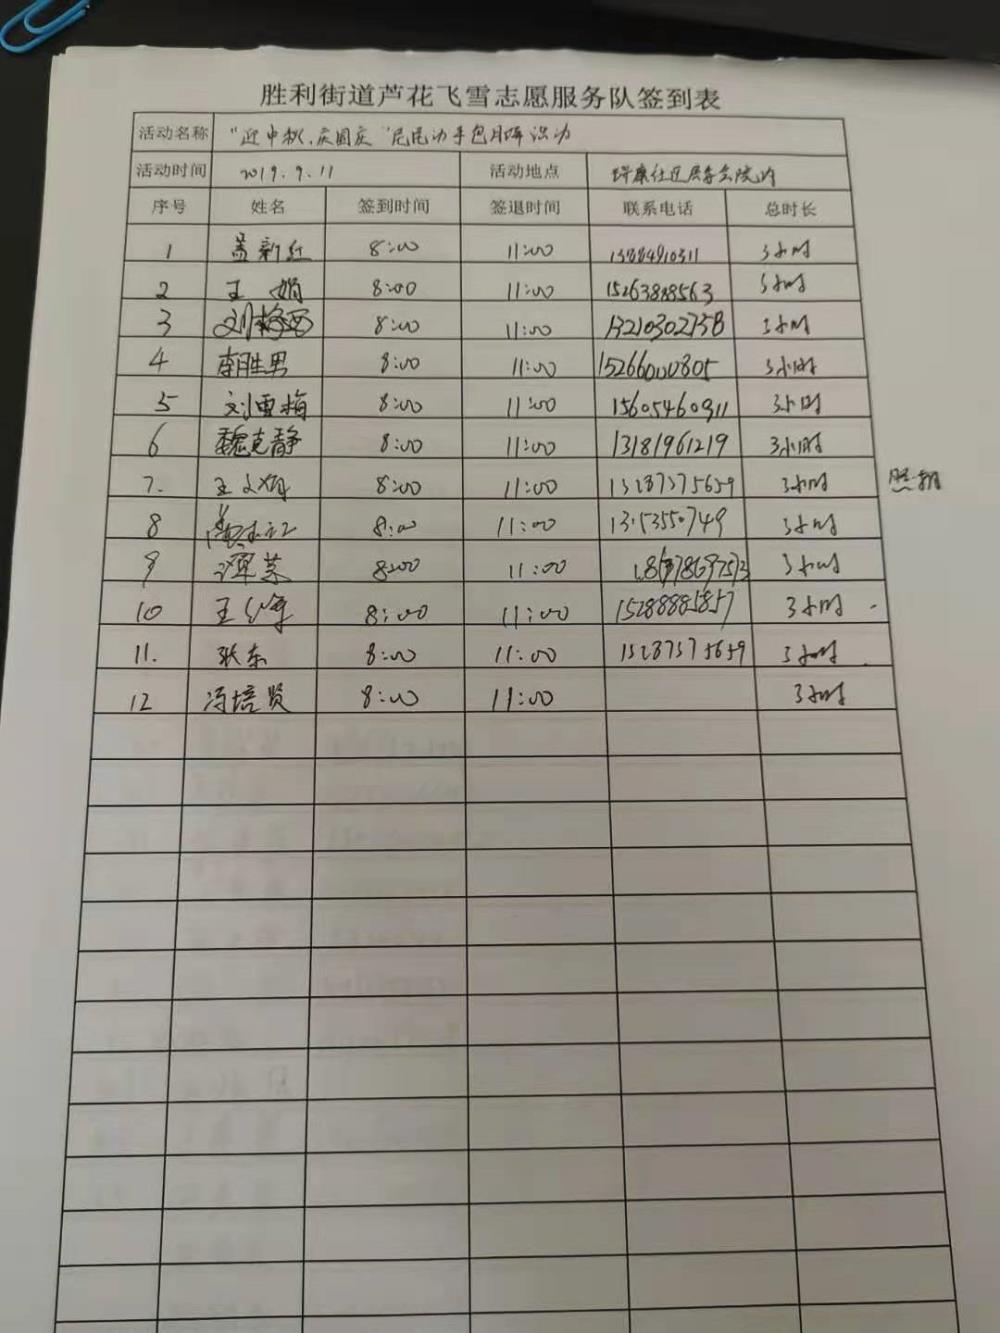 胜利街道芦花飞雪志愿服务队签到表
活动名称 "迎中秋、庆国庆"居民动手包月饼活动
活动时间 2019.9.11 活动地点 社区居委会院内
序号 姓名 签到时间 签退时间 联系电话 总时长
1 孟新红 8:00 11:00 13884910311 3小时
2 王娟 8:00 11:00 15263888563 3小时
3 刘梅西 8:00 11:00 13210302738 3小时
4 李胜男 8:00 11:00 15266000805 3小时
5 刘雪梅 8:00 11:00 15605460911 3小时
6 魏克静 8:00 11:00 13181961219 3小时
7. 王文娟 8:00 11:00 15287375659 3小时
照相
8 8:00 11:00 3小时
9 谭荣 8:00 11:00 3小时
10 王 8:00 11:00 15288885857 3小时
11. 张东 8:00 11:00 15287375659 3小时
12 冯培贤 8:00 11:00 3小时